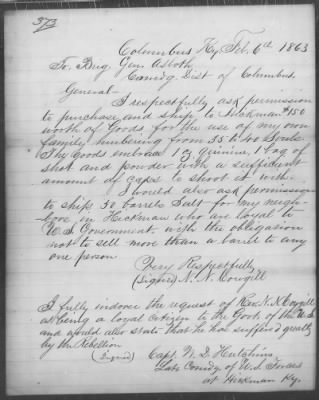 373
Columbus Ky. Feb. 6th 1863
To Brig Gen Asboth
Comdg Dist of Columbus
General—
I respectfully ask permission
to purchase and ship to Hickman $150
worth of Goods for the use of my own
family numbering from 35 to 40 Souls
The Goods embrace 1 oz quinine, 1 bag of
shot and powder with a sufficient
amount of caps to shoot it with.
I would also ask permission
to ship 50 barrels Salt for my neigh-
bors in Hickman who are loyal to
U.S. Government. with the obligation
not to sell more than a barrel to any
one person
Very Respectfully
(Signed) N. N. Cowgill
I fully indorse the request of Rev. N. N. Cowgill
as being a loyal citizen to the Govt. of the U.S.
and would also state that he has suffered greatly
by the Rebellion
(Signed) Capt. W. D. Hutchins
Late Comdg. of U.S. Forces
at Hickman Ky.